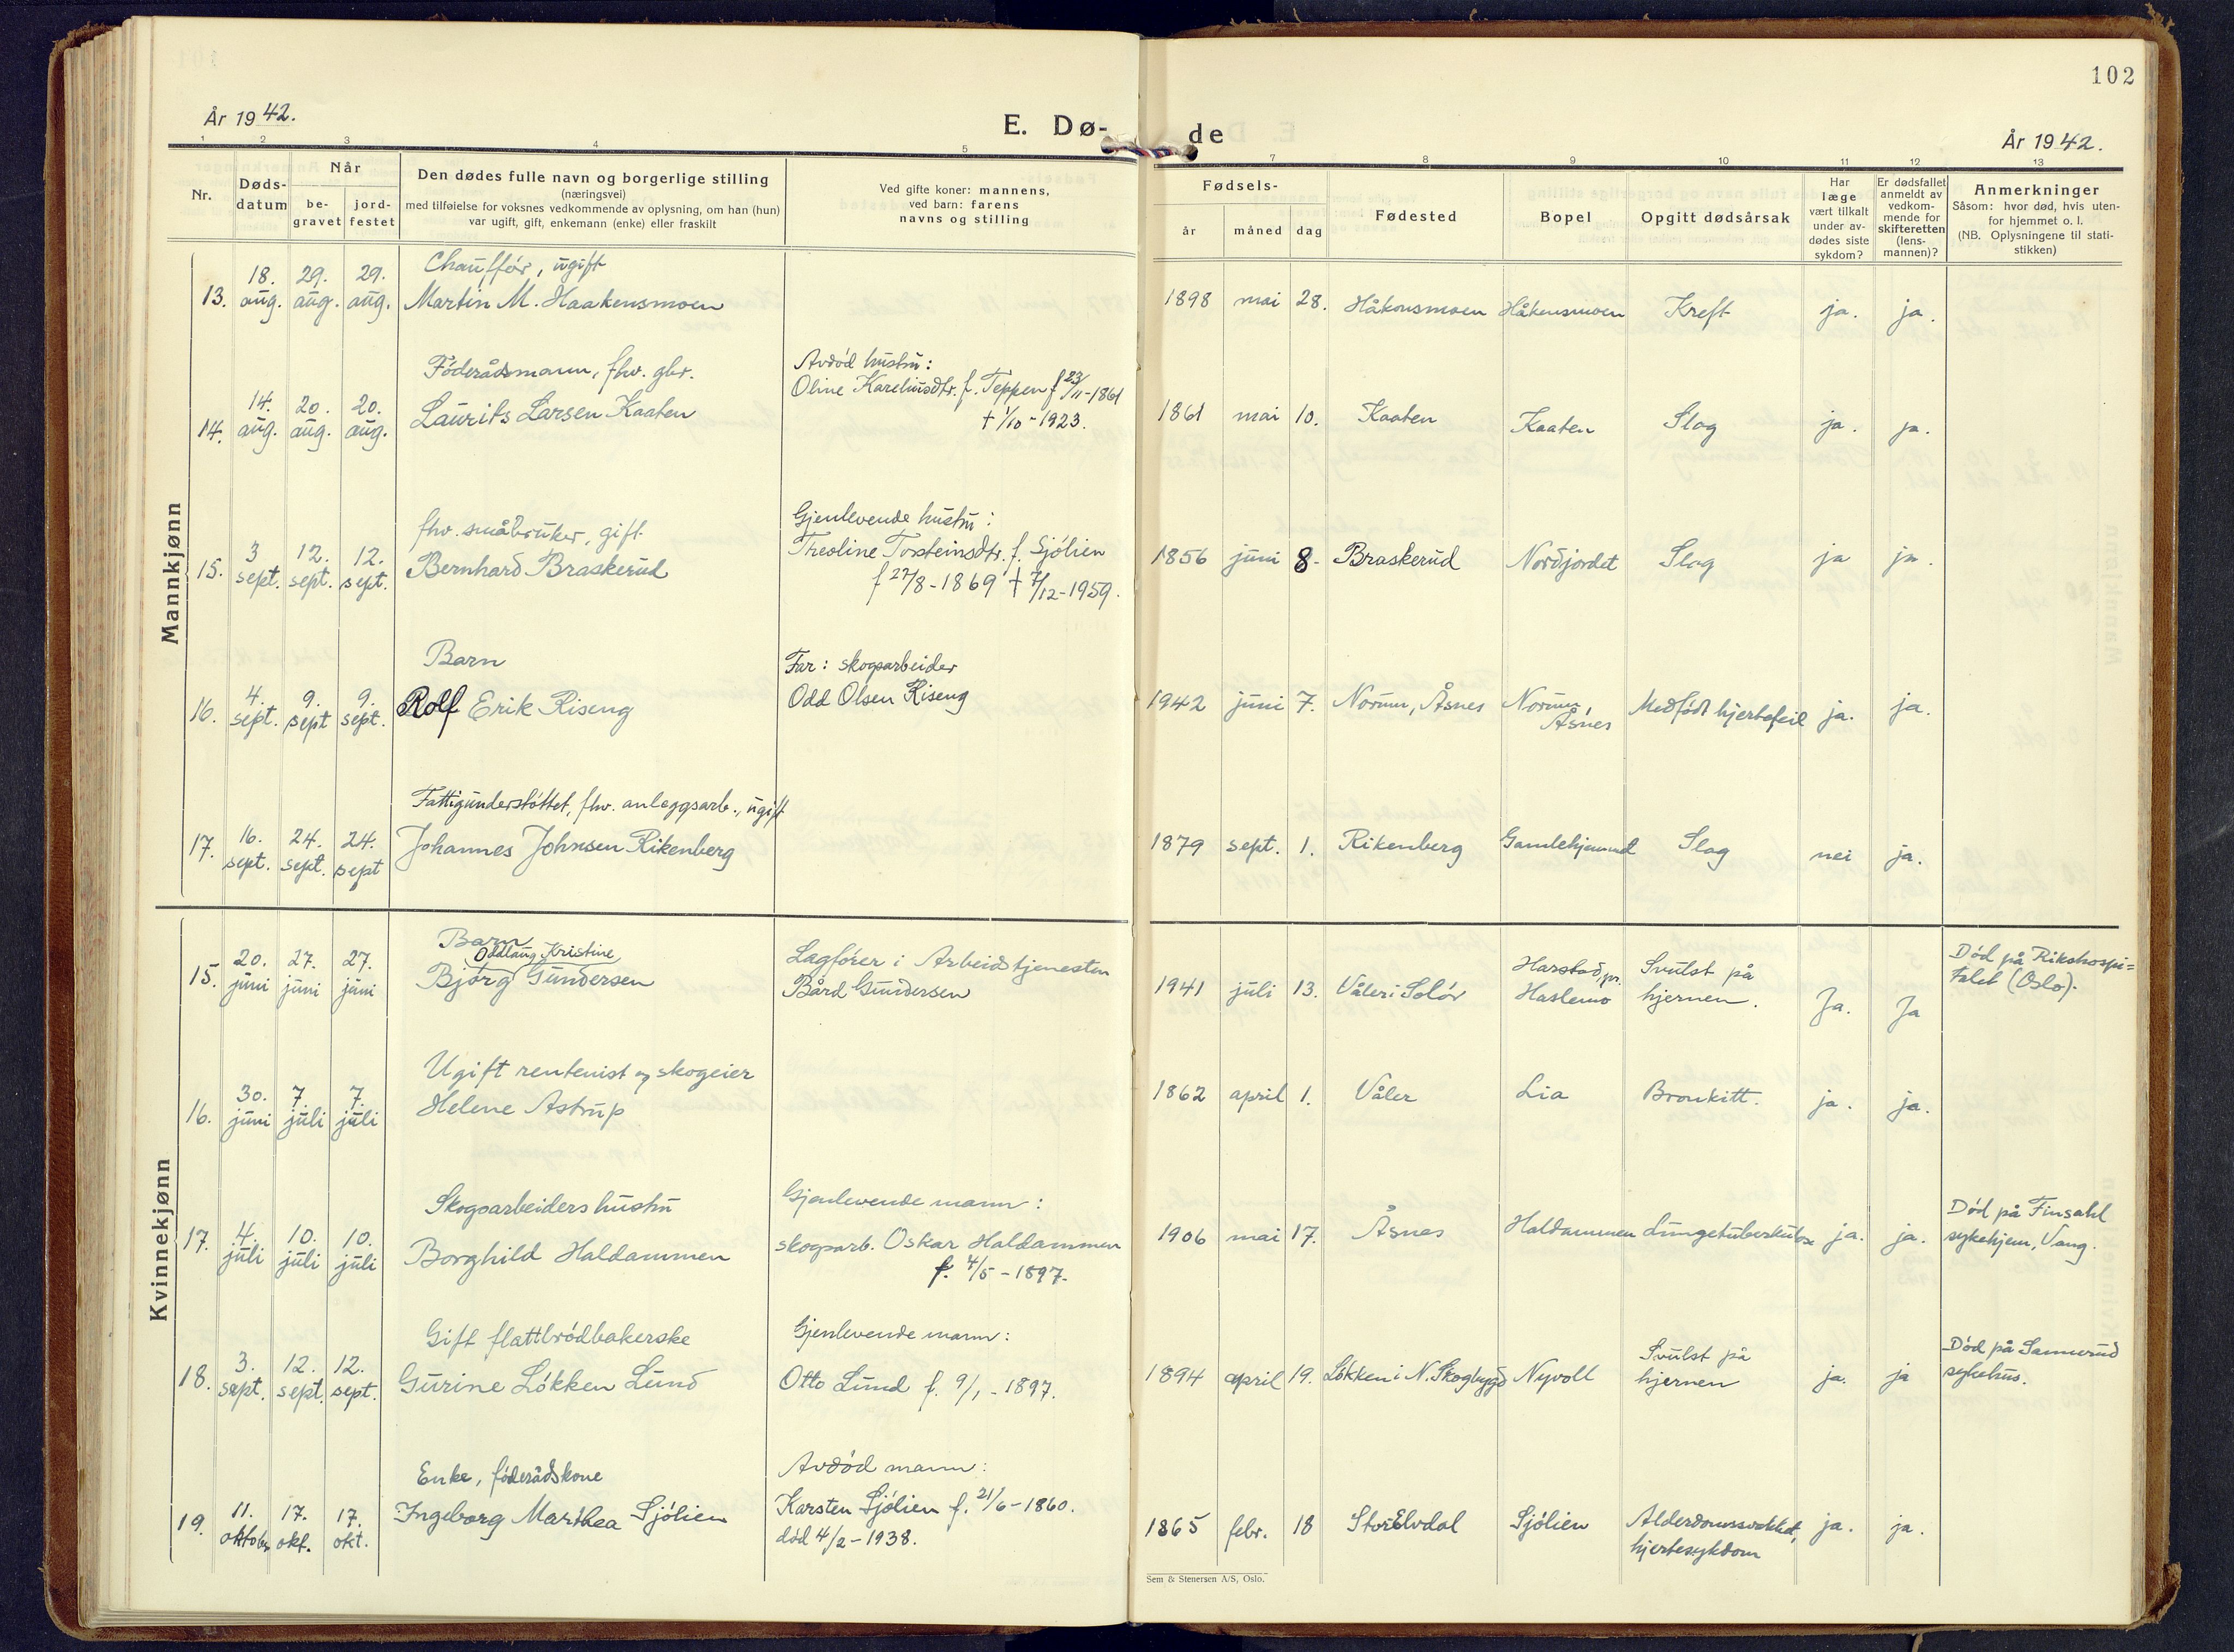 102
År 1942.
E. Dø-
de
År 1942.
1 2 3 4 5 7 8 9 10 11 12 13
Nr.
Døds-
datum
Når
be-
gravet
jord-
festet
Den dødes fulle navn og borgerlige stilling
(næringsvei)
med tilføielse for voksnes vedkommende av oplysning, om han (hun)
var ugift, gift, enkemann (enke) eller fraskilt
Ved gifte koner: mannens,
ved barn: farens
navns og stilling
Fødsels-
år måned dag
Fødested
Bopel
Opgitt dødsårsak
Har
læge
vært tilkalt
under av-
dødes siste
sykdom?
Er dødsfallet
anmeldt av
vedkom-
mende for
skifteretten
(lens-
mannen)?
Anmerkninger
Såsom: hvor død, hvis uten-
for hjemmet o. l.
(NB. Oplysningene til stati-
stikken)
Mannkjønn
Chauffør, ugift
13. 18. aug. 29. aug. 29. aug. Martin M. Haakensmoen 1898 mai 28. Håkonsmoen Håkensmoen Kreft ja. ja.
Føderådsmann, fhv. gbr.
Avdød hustru:
Oline Kareliusdtr. f. Teppen f 23/11-1861
14. 14. aug. 20. aug. 20. aug. Laurits Larsen Kaaten † 1/10-1923. 1861 mai 10. Kaaten Kaaten Slag ja. ja.
fhv. småbruker, gift
Gjenlevende hustru:
15. 3 sept. 12. sept. 12. sept. Bernhard Braskerud Theoline Torsteinsdtr. f. Sjølien 1856 juni 8. Braskerud Nordjordet Slag ja ja.
f 27/8-1869 † 7/12-1959.
Barn
Far: skogsarbeider
16. 4. sept. 9. sept 9. sept. Rolf Erik Riseng Odd Olsen Riseng 1942 juni 7. Norum, Åsnes Norum Åsnes Medfødt hjertefeil ja. ja.
Fattigunderstøttet, fhv. anleggsarb., ugift
17. 16. sept. 24. sept. 24. sept Johannes Johnsen Rikenberg 1879 sept. 1. Rikenberg Gamlehjemmet Slag nei ja.
Kvinnekjønn
Barn
Oddlaug Kristine
Lagfører i Arbeidstjenesten
15. 20. juni 27. juni 27. juni Bjørg Gundersen Bård Gundersen 1941 juli 13. Våler i Solør Harstad, pr. Haslemo Svulst på hjernen. Ja. Ja Død på Rikshospi=
talet (Oslo).
Ugift rentenist og skogeier
16. 30. juni 7. juli 7. juli Helene Astrup 1862 april 1. Våler Lia Bronkitt. ja. ja.
Skogsarbeiders hustru
Gjenlevende mann:
17. 4. juli 10. juli 10. juli Borghild Haldammen skogsarb. Oskar Haldammen 1906 mai 17. Åsnes Haldammen Lungetuberkulose ja. ja. Død på Finsahl
sykehjem, Vang.
f. 4/5-1897.
Gift flattbrødbakerske
Gjenlevende mann:
18. 3. sept. 12. sept. 12. sept. Gurine Løkken Lund Otto Lund f. 9/1-1897. 1894 april 19. Løkken i N. Skogbygd Nyvoll Svulst på hjernen ja. ja Død på Sannerud
sykehus.
Enke, føderådskone
Avdød mann:
19. 11. oktober 17. okt. 17. okt. Ingeborg Marthea Sjølien Karsten Sjølien f. 21/6-1860. 1865 febr. 18 StorElvdal Sjølien Alderdomssvakhet, hjertesykdom ja. ja.
død 4/2-1938.
Sem & Stenersen A/S, Oslo.